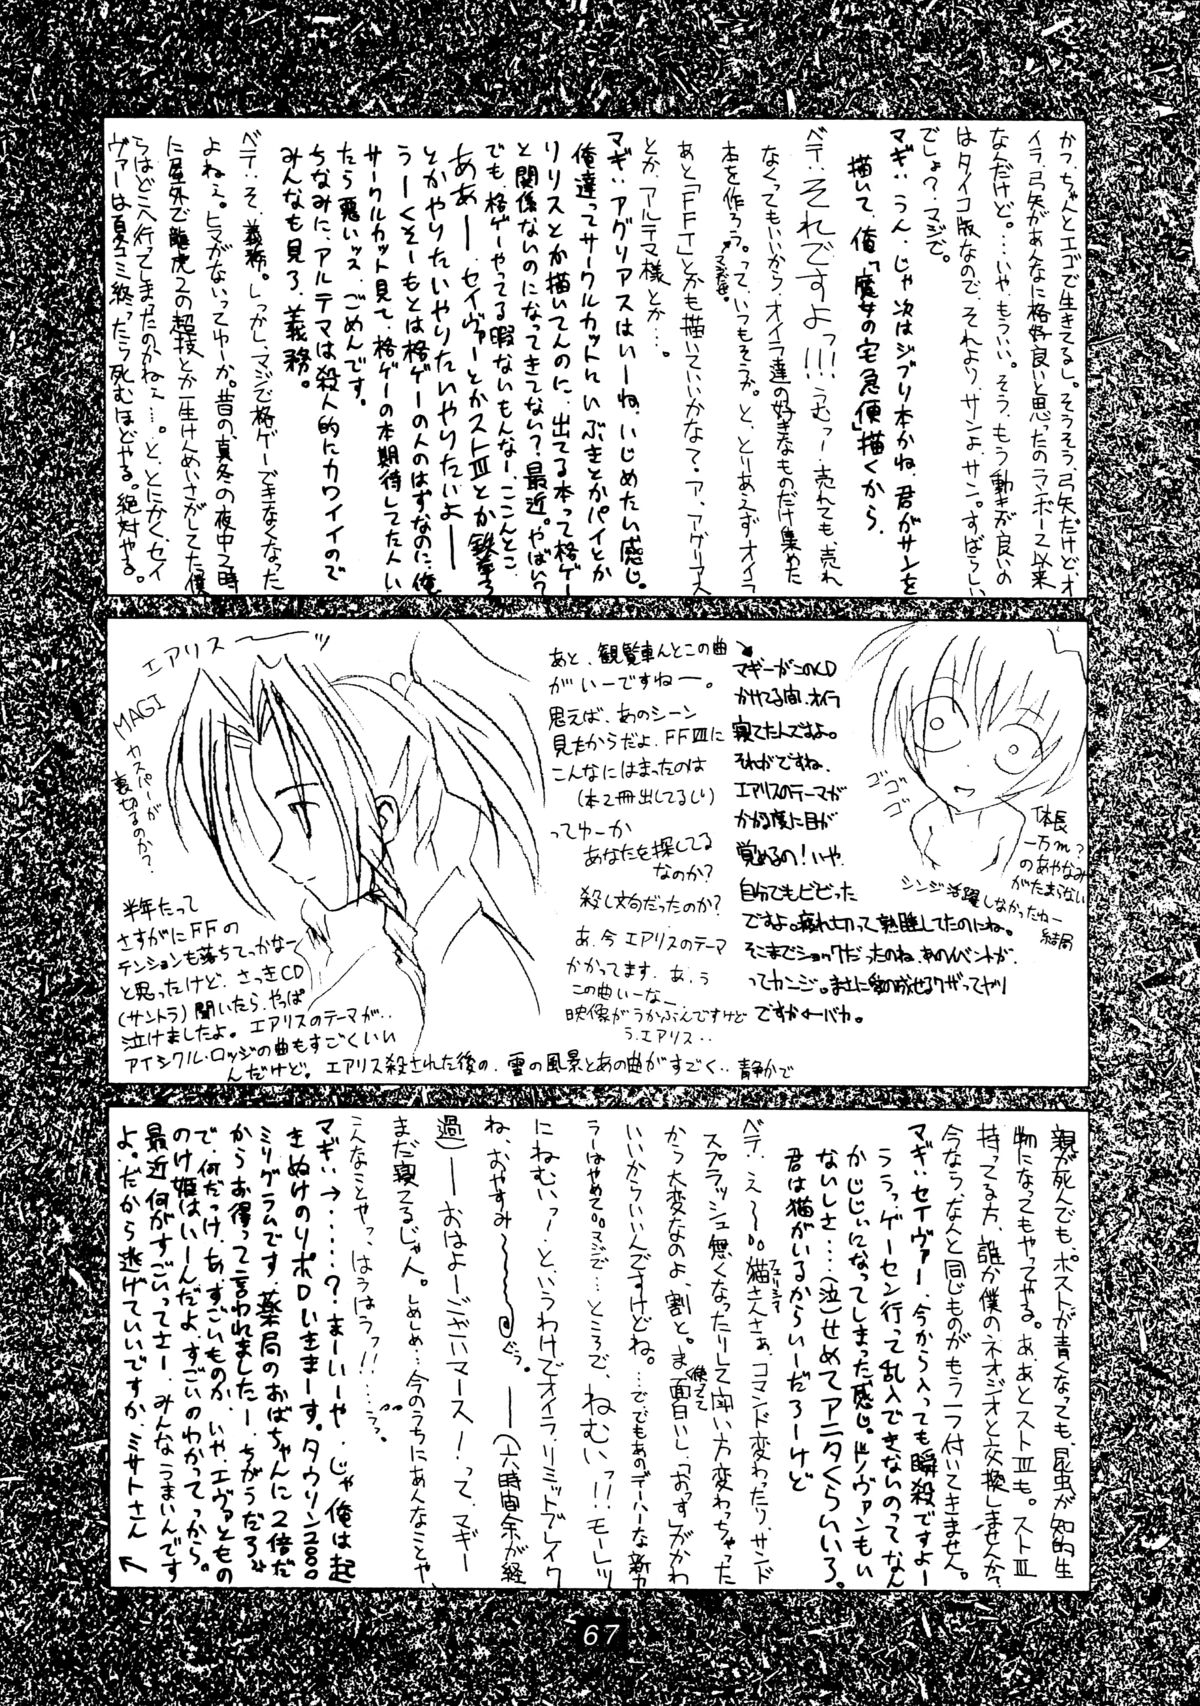 かつ、ちゃんとエゴで生きてるし。そうそう、弓矢だけど、オ
イラ、弓矢があんなに格好良いと思ったのランボー2以来
なんだけど。…いや、もういい。そう、もう動きが良いの
はタイコ版なので、それより、サンよ、サン。すばらしい
でしょ?マジで。
マギ:うん。じゃ次はジブリ本かね、君がサンを
描いて、俺「魔女の宅急便」描くから。
ベテ:それですよっ!!!うむァー、売れても、売れ
なくってもいいから、オイラ達の好きなものだけ集めた
本を作ろう。って、いつもそうか。と、とりあえずオイラ
あと「FFT」とかも描いていいかなて。ア、アグリアス
とか、アルテマ様とか…。
マギ:アグリアスはいーね、いじめたい感じ。
俺達ってサークルカットにいぶきとかパイとか
リリスとか描いてんのに、出てる本って格ゲー
と関係ないのになってきてない?最近。やばい?
でも、格ゲーやってる暇ないもんな、ここんとこ、
ああー、セイヴァーとかストⅢとか鉄拳3
とかやりたいやりたいやりたいやりたいよー
うーくそーもとは格ゲーの人のはずなのに俺
サークルカット見て、格ゲーの本期待してた人い
たら悪いッス、ごめんです。
ちなみに、アルテマは殺人的にカワイイので
みんなも見ろ、義務。
ベテ:そ、義務。しっかし、マジで格ゲーできなくなった
よねぇ。ヒマがないってゆーか。昔の、真冬の夜中2時
に屋外で龍虎2の超技とか一生けんめいさがしてた僕
らはどこへ行ってしまったのかねぇ…。と、とにかく、セイ
ヴァーは夏コミ終ったら死むほどやる。絶対やる。
エアリス〜ッ
MAGI
カスパーが
裏切るのか?
半年たって
さすがにFFの
テンションも落ちてっかなー
と思ったけど、さっきCD
(サントラ)聞いたら、やっぱ
泣けましたよ。エアリスのテーマが‥
アイシクル・ロッジの曲もすごくいい
んだけど。エアリス殺された後の、雪の風景とあの曲がすごく‥静かで
あと、観覧車んとこの曲
がいーですねー。
思えば、あのシーン
見たからだよ、FFⅦに
こんなにはまったのは
(本2冊出してるし)
ってゆーか
あなたを探してる
なのか?
殺し文句だったのか?
あ、今エアリスのテーマ
かかってます。あ、う
この曲いーなー、
映像がうかぶんですけど
う、エアリス‥
マギーがこのCD
かけてる間、オイラ
寝てたんですよ。
それがですね、
エアリスのテーマが
かかる度に目が
覚めるの!いや、
自分でもビビった
ですよ。疲れ切って熟睡してたのにね。
そこまでショックだったのね、あのイベントが、
ってカンジ。まさに愛の成せるワザってヤツ
ですか←バカ。
ゴゴゴ
体長
一万m?
のあやなみ
がたまらない
シンジ活躍しなかったねー
結局
親が死んでも、ポストが青くなっても、昆虫が知的生
物になってもやってやる。ああとストⅢも。ストⅢ
持ってる方、誰か僕のネオジオと交換しませんか?
今なら、なんと同じものがもう一つ付いてきません。
マギ:セイヴァー、今から入っても瞬殺ですよー
ううっ、ゲーセン行って乱入できないのってなん
かじじいになってしまった感じ。ドノヴァンもい
ないしさ…(泣)せめてアニタくらいいろ。
君は猫がいるからいーだろーけど
ベテ:え〜。猫さんさぁ、コマンド変わったり、サンド
スプラッシュ無くなったりして闘い方変わっちゃった
から大変なのよ、割と。ま、面白いし、「おっす」がかわ
いいからいいんですけどね。…ででもあのデハーな新カ
ラーはやめて。マジで…ところで、ねむいっ!!モーレツ
にねむいっ!と、いうわけでオイラ、リミットブレイク
ね、おやすみ〜ぐぅ。——(六時間余が経
過)——おはよーございマース!って、マギー
まだ寝てるじゃん。しめしめ…今のうちにあんなことや、
こんなことやっ、はうはうっ!!…うっ。
マギ:→……?まーいーや、じゃ俺は起
きぬけのリポDいきまーす。タウリン2000
ミリグラムです。薬局のおばちゃんに2倍だ
からお得って言われましたー。ちがうだろ。
で、何だっけ、あ、すごいものか、いや、エヴァともの
のけ姫はいーんだよ、すごいのわかってっから。
最近何がすごいってさー、みんなうまいんです
よ。だから逃げていいですか、ミサトさん
67